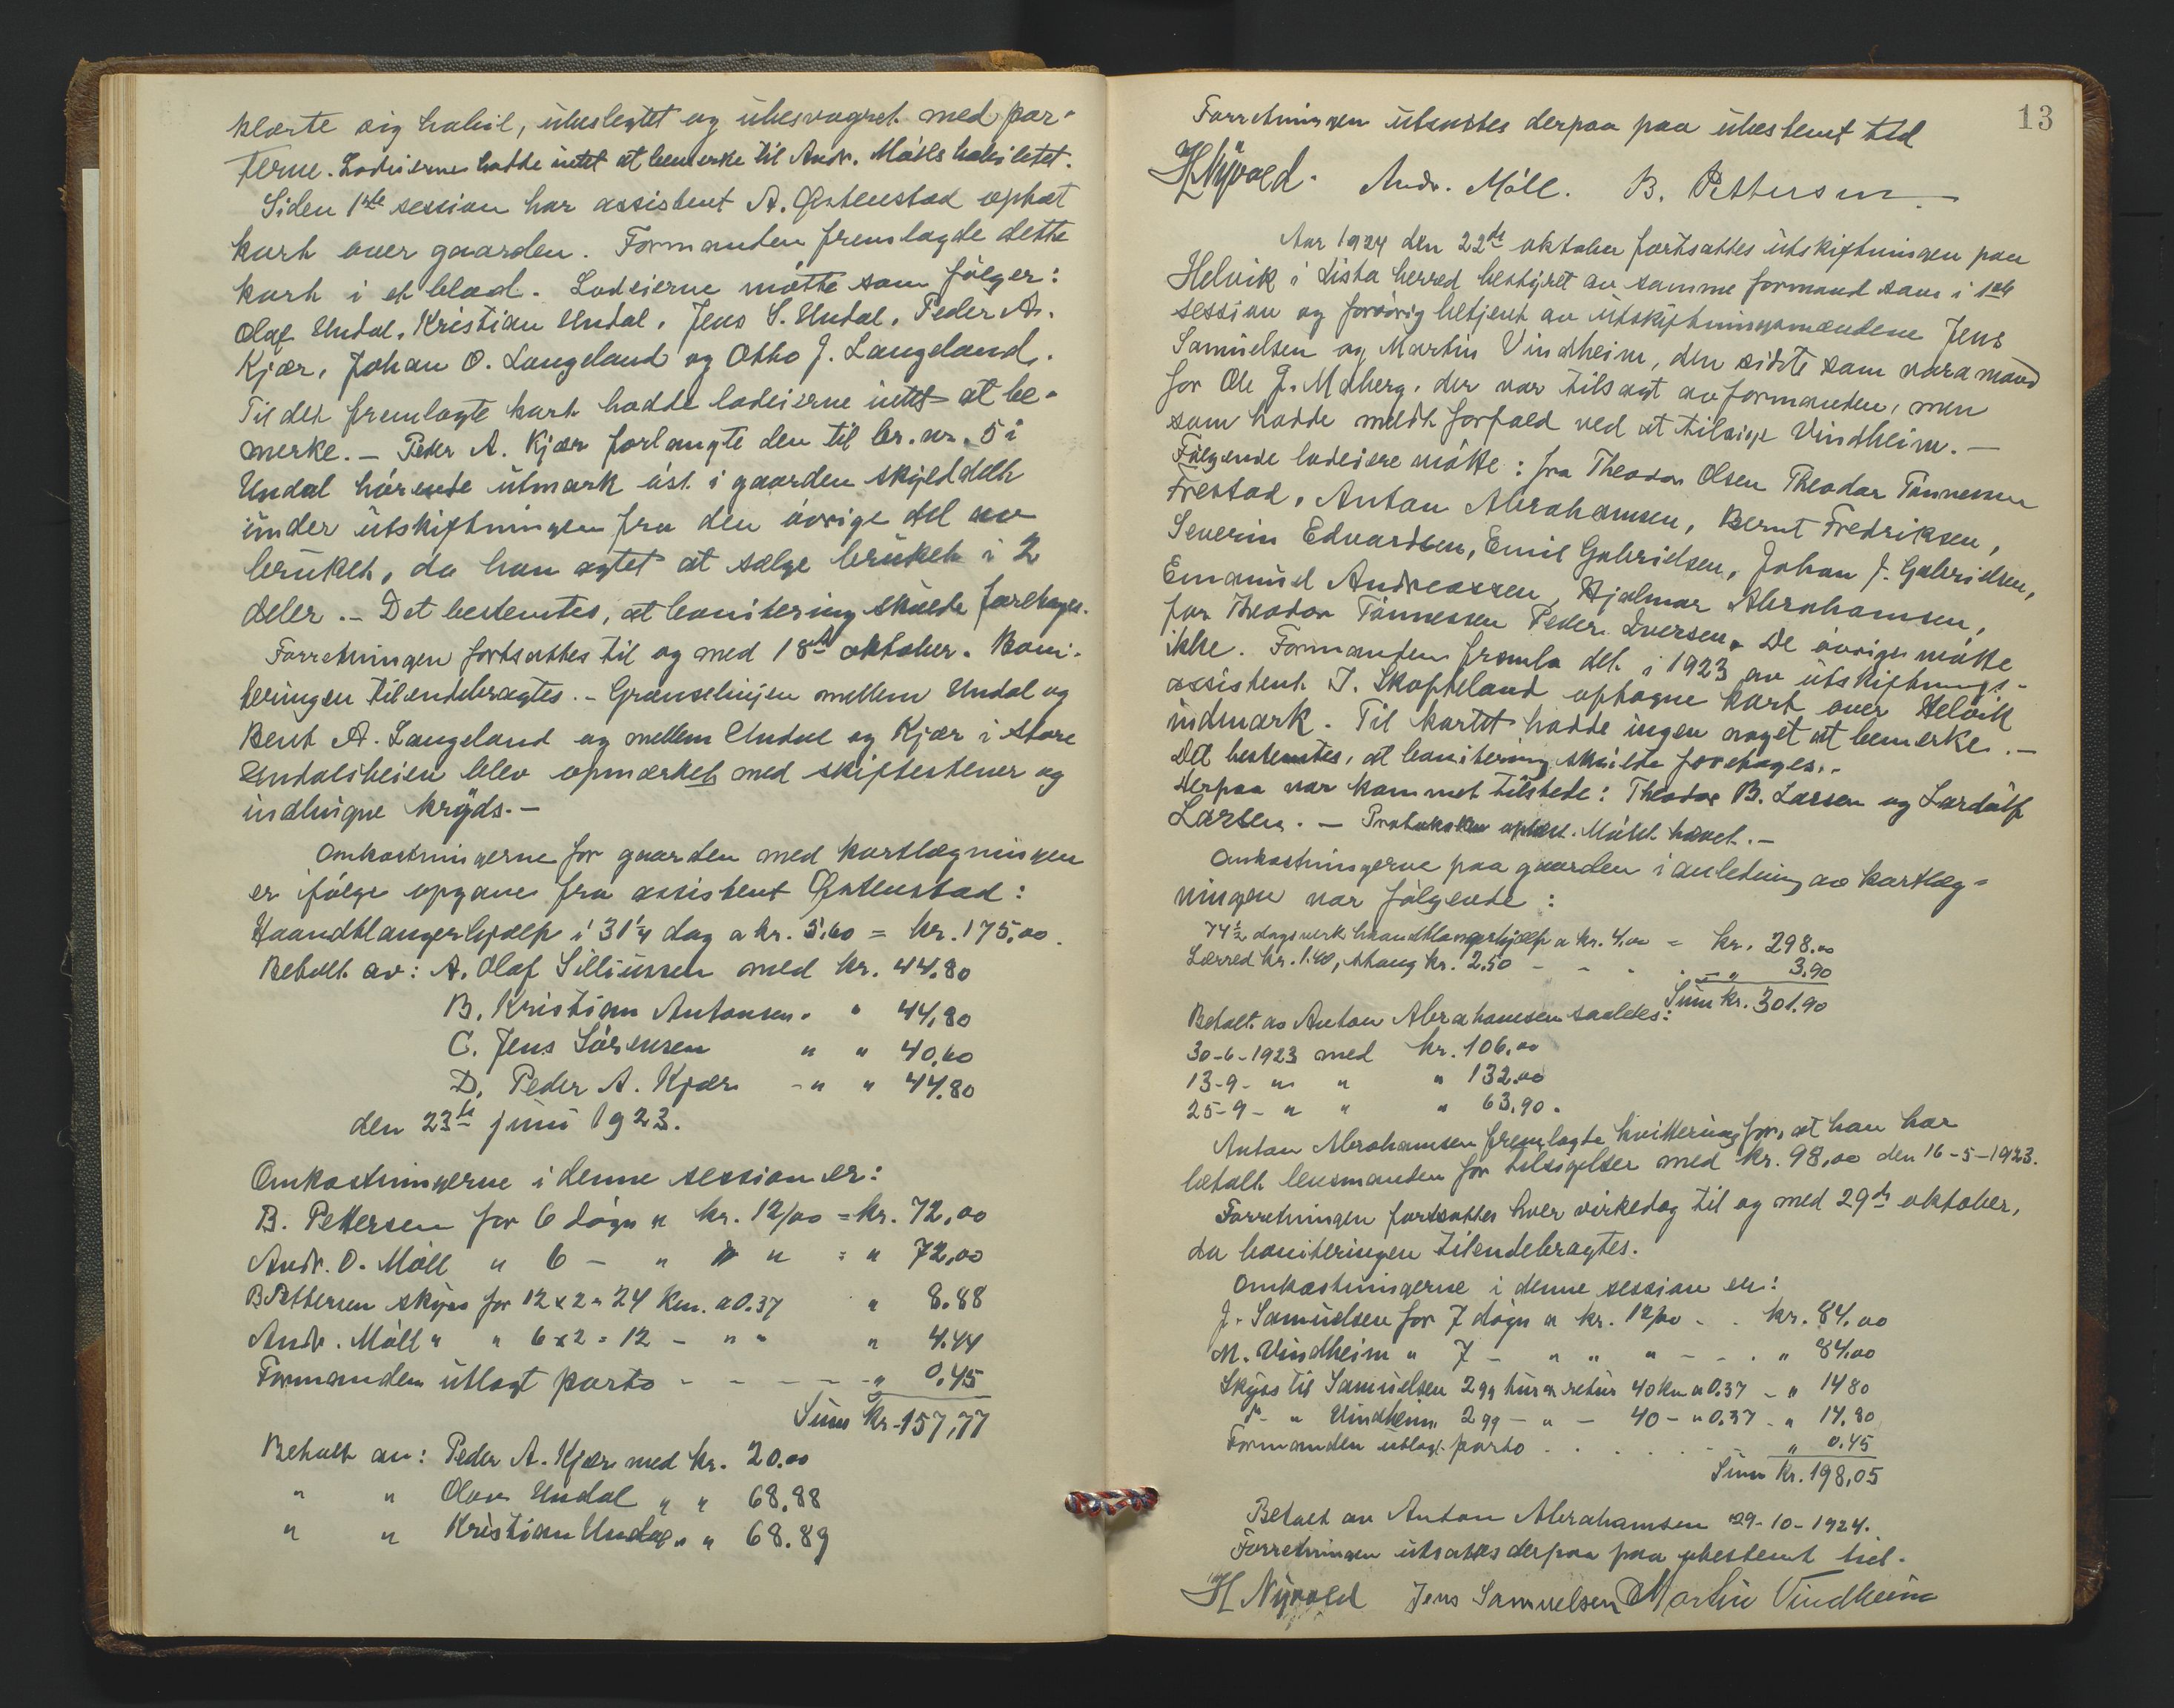 klærte sig habil, ubeslegtet og ubesvogret med par-
terne. Lodeierne hadde intet at bemerke til Andr. Mölls habilitet.
Siden 1ste session har assistent A. optat
kart over gaarden. Formanden fremlagde dette
kart i et blad. Lodeierne mötte som fölger:
Olaf Undal, Kristian Undal, Jens S. Undal, Peder A.
Kjær, Johan O. Langeland og Otto J. Langeland.
Til det fremlagte kart hadde lodeierne intet at be-
merke. – Peder A. Kjær forlangte den til br. nr. 5 i
Undal hörende utmark öst i gaarden skyldelt
under utskiftningen fra den övrige del av
bruket, da han agtet at sælge bruket i 2
deler. – Det bestemtes, at bonitering skulde foretages.
Forretningen fortsattes til og med 18de oktober. Boni-
teringen tilendebragtes. – Grænselinjen mellem Undal og
Bent A. Langeland og mellem Undal og Kjær i Store
Undalsheien blev opmærket med skiftestener og
indhugne kryds. –
Omkostningerne for gaarden med kartlægningen
er ifölge opgave fra assistent :
Haandtlangerhjælp i 31 1/4 dag a kr. 5,60 = kr. 175,00.
Betalt av: A. Olaf Silliussen med kr. 44,80
B. Kristian Antonsen " " 44,80
C. Jens Sörensen " " 40,60
D. Peder A. Kjær - " " 44,80
den 23de juni 1923.
Omkostningerne i denne session er:
B. Pettersen for 6 dögn a kr. 12/00 = kr. 72,00
Andr. O. Möll " 6 – " " " = " 72,00
B Pettersen skyss for 12 x 2 = 24 km. a 0.37 " 8.88
Andr. Möll " " 6 x 2 = 12 – " " " 4.44
Formanden utlagt porto - - - - - " 0,45
Sum kr. 157,77
Betalt av: Peder A. Kjær med kr. 20.00
" " Olav Undal " " 68.88
" " Kristian Undal " " 68.89
13
Forretningen utsattes derpaa paa ubestemt tid
H Nyvold. Andr. Möll. B. Pettersen
Aar 1924 den 22de oktober fortsattes utskiftningen paa
Helvik i Lista herred bestyret av samme formand som i 1ste
session og forövrig betjent av utskiftningsmændene Jens
Samuelsen og Martin Vindheim, den sidste som varamand
for Ole J. Moberg, der var tilsagt av formanden, men
som hadde meldt forfald ved at tilsige Vindheim. –
Fölgende lodeiere mötte: for Theodor Olsen Theodor Tönnessen
Frestad, Anton Abrahamsen, Bernt Fredriksen,
Severin Edvardsen, Emil Gabrielsen, Johan J. Gabrielsen,
Emanuel Andreassen, Hjalmar Abrahamsen,
for Theodor Tönnessen Peder Iversen. De övrige mötte
ikke. Formanden fremla det i 1923 av utskiftnings-
assistent T. Skofteland optagne kart over Helvik
indmark. Til kartet hadde ingen noget at bemerke. –
Det bestemtes, at bonitering skulde foretages. –
Herpaa var kommet tilstede: Theodor B. Larsen og Lardulf
Larsen. – Protokollen oplæst. Mötet hævet. –
Omkostningerne paa gaarden i anledning av kartlæg-
ningen var fölgende:
74 1/2 dagsverk haandtlangerhjælp a kr. 4,00 = kr. 298.00
Lærred kr. 1.40, stang kr. 2.50 - - - - " 3.90
Sum kr. 301.90
Betalt av Anton Abrahamsen saaledes:
30-6-1923 med kr. 106,00
13-9- " " " 132.00
25-9- " " " 63.90.
Anton Abrahamsen fremlagte kvittering for, at han har
betalt lensmanden for tilsigelser med kr. 98,00 den 16-5-1923.
Forretningen fortsattes hver virkedag til og med 29de oktober,
da boniteringen tilendebragtes.
Omkostningerne i denne session er:
J. Samuelsen for 7 dögn a kr. 12/00 - - kr. 84,00
M. Vindheim " 7 – " " " - - - " 84,00
Skyss til Samuelsen 2 gg tur & retur 40 km a 0.37 - " 14 80
" Vindheim 2 gg – " – 40 – " 0.37 - " 14.80
Formanden utlagt porto . . . . . " 0.45
Sum kr. 198,05
Betalt av Anton Abrahamsen 29-10-1924.
Forretningen utsattes derpaa paa ubestemt tid.
H Nyvold Jens Samuelsen Martin Vindheim